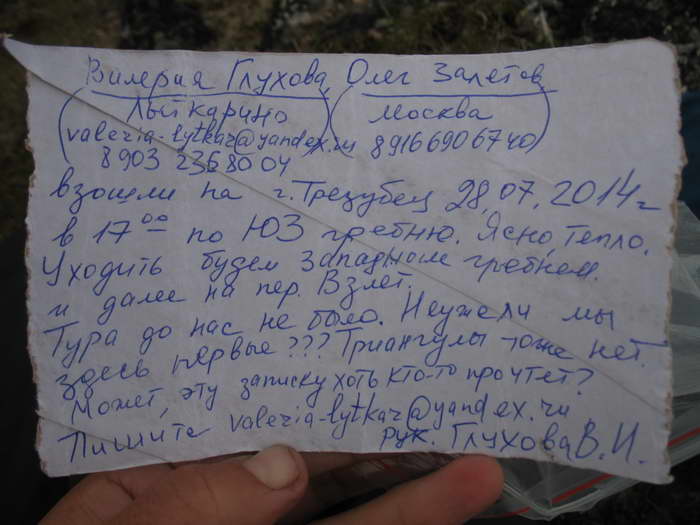 Валерия Глухова, Олег Залетов
(Лыткарино) (Москва
valeria-lytkar@yandex.ru 89166906740)
8 903 236 80 04
взошли на г. Трезубец 28.07.2014г
в 17 00 по ЮЗ гребню. Ясно, тепло.
Уходить будем западным гребнем.
и далее на пер. Взлет.
Тура до нас не было. Неужели мы
здесь первые??? Триангулы тоже нет.
Может, эту записку хоть кто-то прочтет?
Пишите valeria-lytkar@yandex.ru
рук. Глухова В.И.